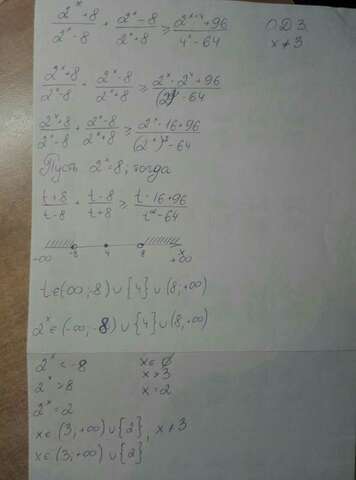 (2^x+8)/(2^x-8) + (2^x-8)/(2^x+8) ≥ (2^(x+4)+96)/(4^x-64) ОДЗ
x≠3
(2^x+8)/(2^x-8) + (2^x-8)/(2^x+8) ≥ (2^x·2^4+96)/((2^x)^2-64)
(2^x+8)/(2^x-8) + (2^x-8)/(2^x+8) ≥ (2^x·16+96)/((2^x)^2-64)
Пусть 2^x=8; тогда
(t+8)/(t-8) + (t-8)/(t+8) ≥ (t·16+96)/(t^2-64)
-8 4 8 x
+∞ +∞
t∈(∞;-8)∪{4}∪(8;+∞)
2^x∈(-∞;-8)∪{4}∪(8;+∞)
2^x<-8 x∈∅
2^x>8 x>3
2^x=2 x=2
x∈(3;+∞)∪{2}, x≠3
x∈(3;+∞)∪{2}